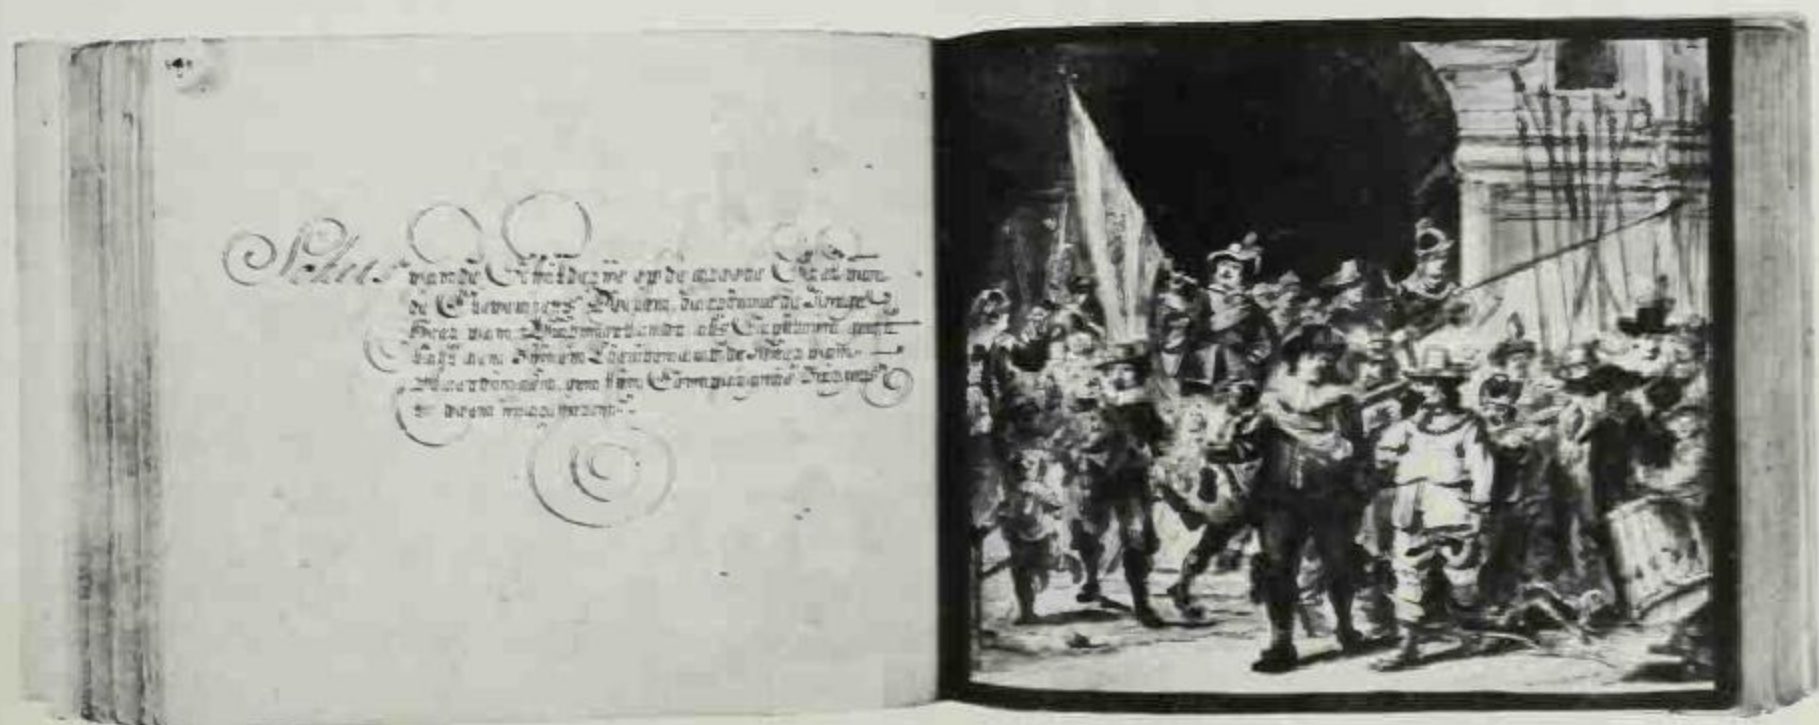 Schets van de Schilderije op de groote Sael van
de Cleveniers Doelen, daerinne de Jonge
Heer van Purmerlandt als Capiteijn, geeft
last aen zijnen Lieutenant, de Heer van
Vlaerdingen, om sijn Compaignie Burgers
te doen marcheren.